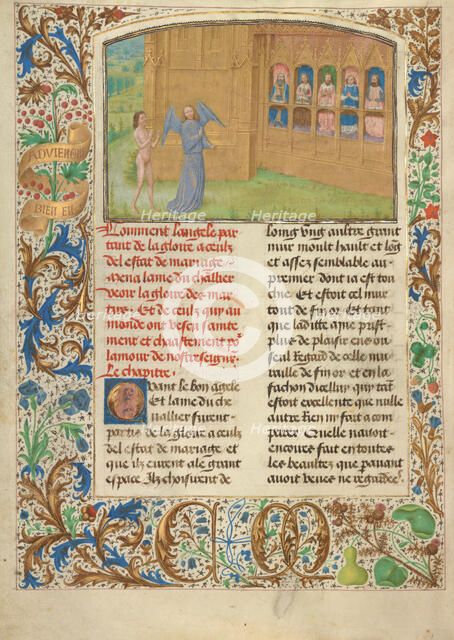 ADVIENGNE
BIEN EN
Comment langele par
tant de la gloire a ceulz
del estat de mariage
mena lame du chůallier
veoir la gloire des mar
tirs · Et de ceulz qui au
monde ont vescu sainte
ment et chastement po^r
lamour de nostre seigñr
Le chapitre ·
Quant le bon angele
Et lame du che
uallier furent
partis de la gloire a ceulz
del estat de mariage et
que ilz eurent ale grant
espace Ilz choisirent de
loing vng aultre grant
mur moult hault et log
et assez semblable au
premier dont ia est tou
chie · Et estoit cel mur
tout de fin or · Et tant
que laditte ame prist
plus de plaisir en vn
seul regard de celle mu
raille de fin or et en la
fachon dicelluy qui tāt
estoit excellente que nulle
autre Rien ny fait a com
parer · Quelle nauoit
encoires fait en toutes
les beaultez que parauant
auoit veues ne regardees ·
C M
Heritage
Heritage
Heritage
Heritage
Heritage
Heritage
Heritage
Heritage
Heritage